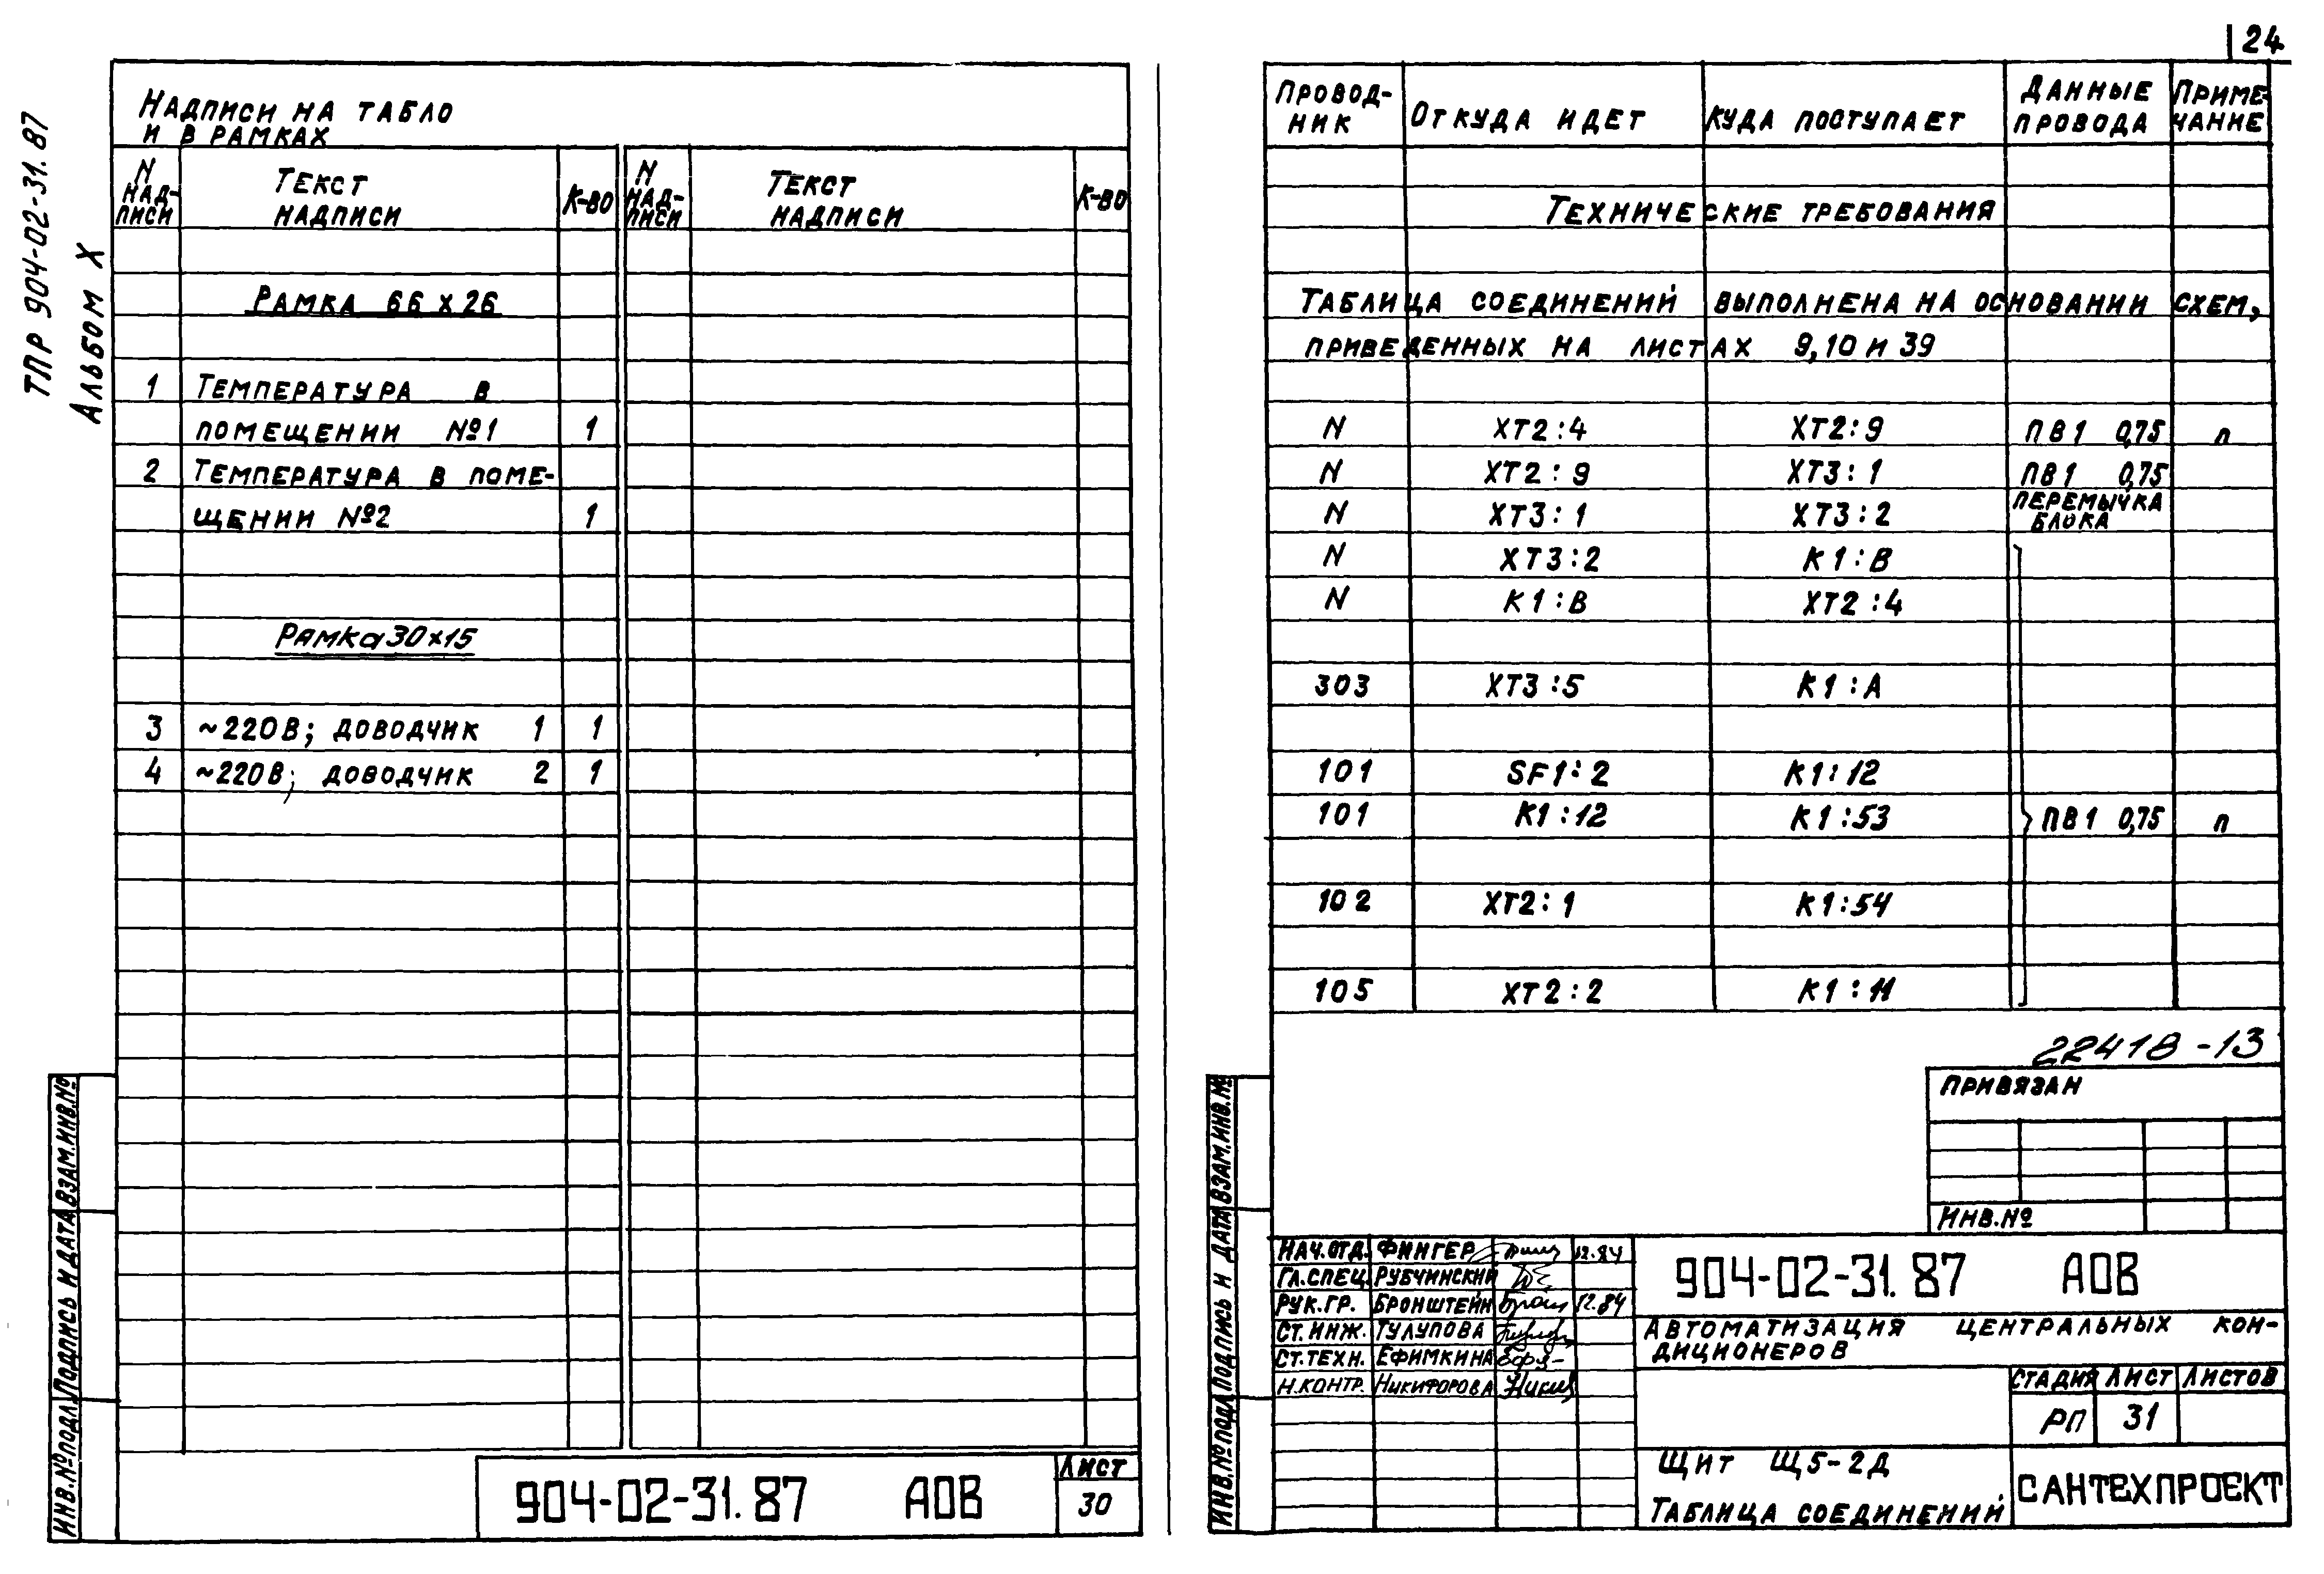 24
ТПР 904-02-31.87
Альбом X
Надписи на табло
и в рамках
N надписи Текст надписи К-во N надписи Текст надписи К-во
Рамка 66 х 26
1 Температура в
помещении №1 1
2 Температура в поме-
щении №2 1
Рамка 30х15
3 ~220В; доводчик 1 1
4 ~220В; доводчик 2 1
Инв.№подл. Подпись и дата Взам.инв.№
904-02-31.87 АОВ
Лист
30
Провод-
ник Откуда идет Куда поступает Данные
провода Приме-
чание
Технические требования
Таблица соединений выполнена на основании схем,
приведенных на листах 9,10 и 39
N ХТ2:4 ХТ2:9 ПВ1 0,75 п
N ХТ2:9 ХТ3:1 ПВ1 0,75
N ХТ3:1 ХТ3:2 перемычка
блока
N ХТ3:2 К1:В
N К1:В ХТ2:4
303 ХТ3:5 К1:А
101 SF1:2 К1:12
101 К1:12 К1:53 ПВ1 0,75 п
102 ХТ2:1 К1:54
105 ХТ2:2 К1:11
22418-13
Привязан
Инв.№
Инв.№подл. Подпись и дата Взам.инв.№
Нач.отд. Фингер 12.84
Гл.спец. Рубчинский
Рук.гр. Бронштейн 12.84
Ст.инж. Тулупова
Ст.техн. Ефимкина
Н.контр. Никифорова
904-02-31.87 АОВ
Автоматизация центральных кон-
диционеров
Стадия Лист Листов
РП 31
Щит Щ5-2Д
Таблица соединений
САНТЕХПРОЕКТ